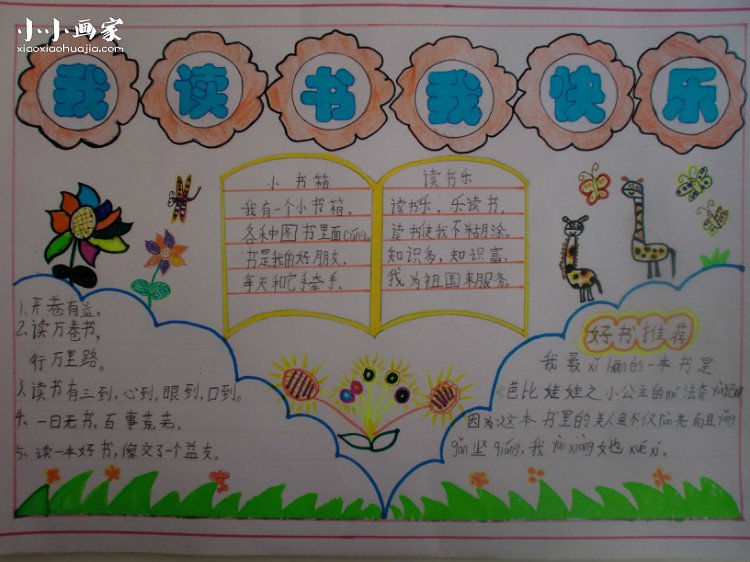 小小画家
xiaoxiaohuajia.com
我读书我快乐
小书箱
我有一个小书箱、
各种图书里面cáng。
书是我的好朋友、
每天和它手牵手、
读书乐
读书乐、乐读书,
读书使我不糊涂。
知识多,知识富、
我为祖国来服务。
1、开卷有益。
2、读万卷书,
行万里路。
3、读书有三到,心到,眼到,口到。
4、一日无书,百事荒芜。
5、读一本好书,像交了一个益友。
好书推荐
我最xǐ huān的一本书是
《芭比娃娃之小公主的mó法奇
因为这本书里的美人鱼不仅piào亮而且yǒng
gǎn坚qiáng,我yào xiàng她xué xí。